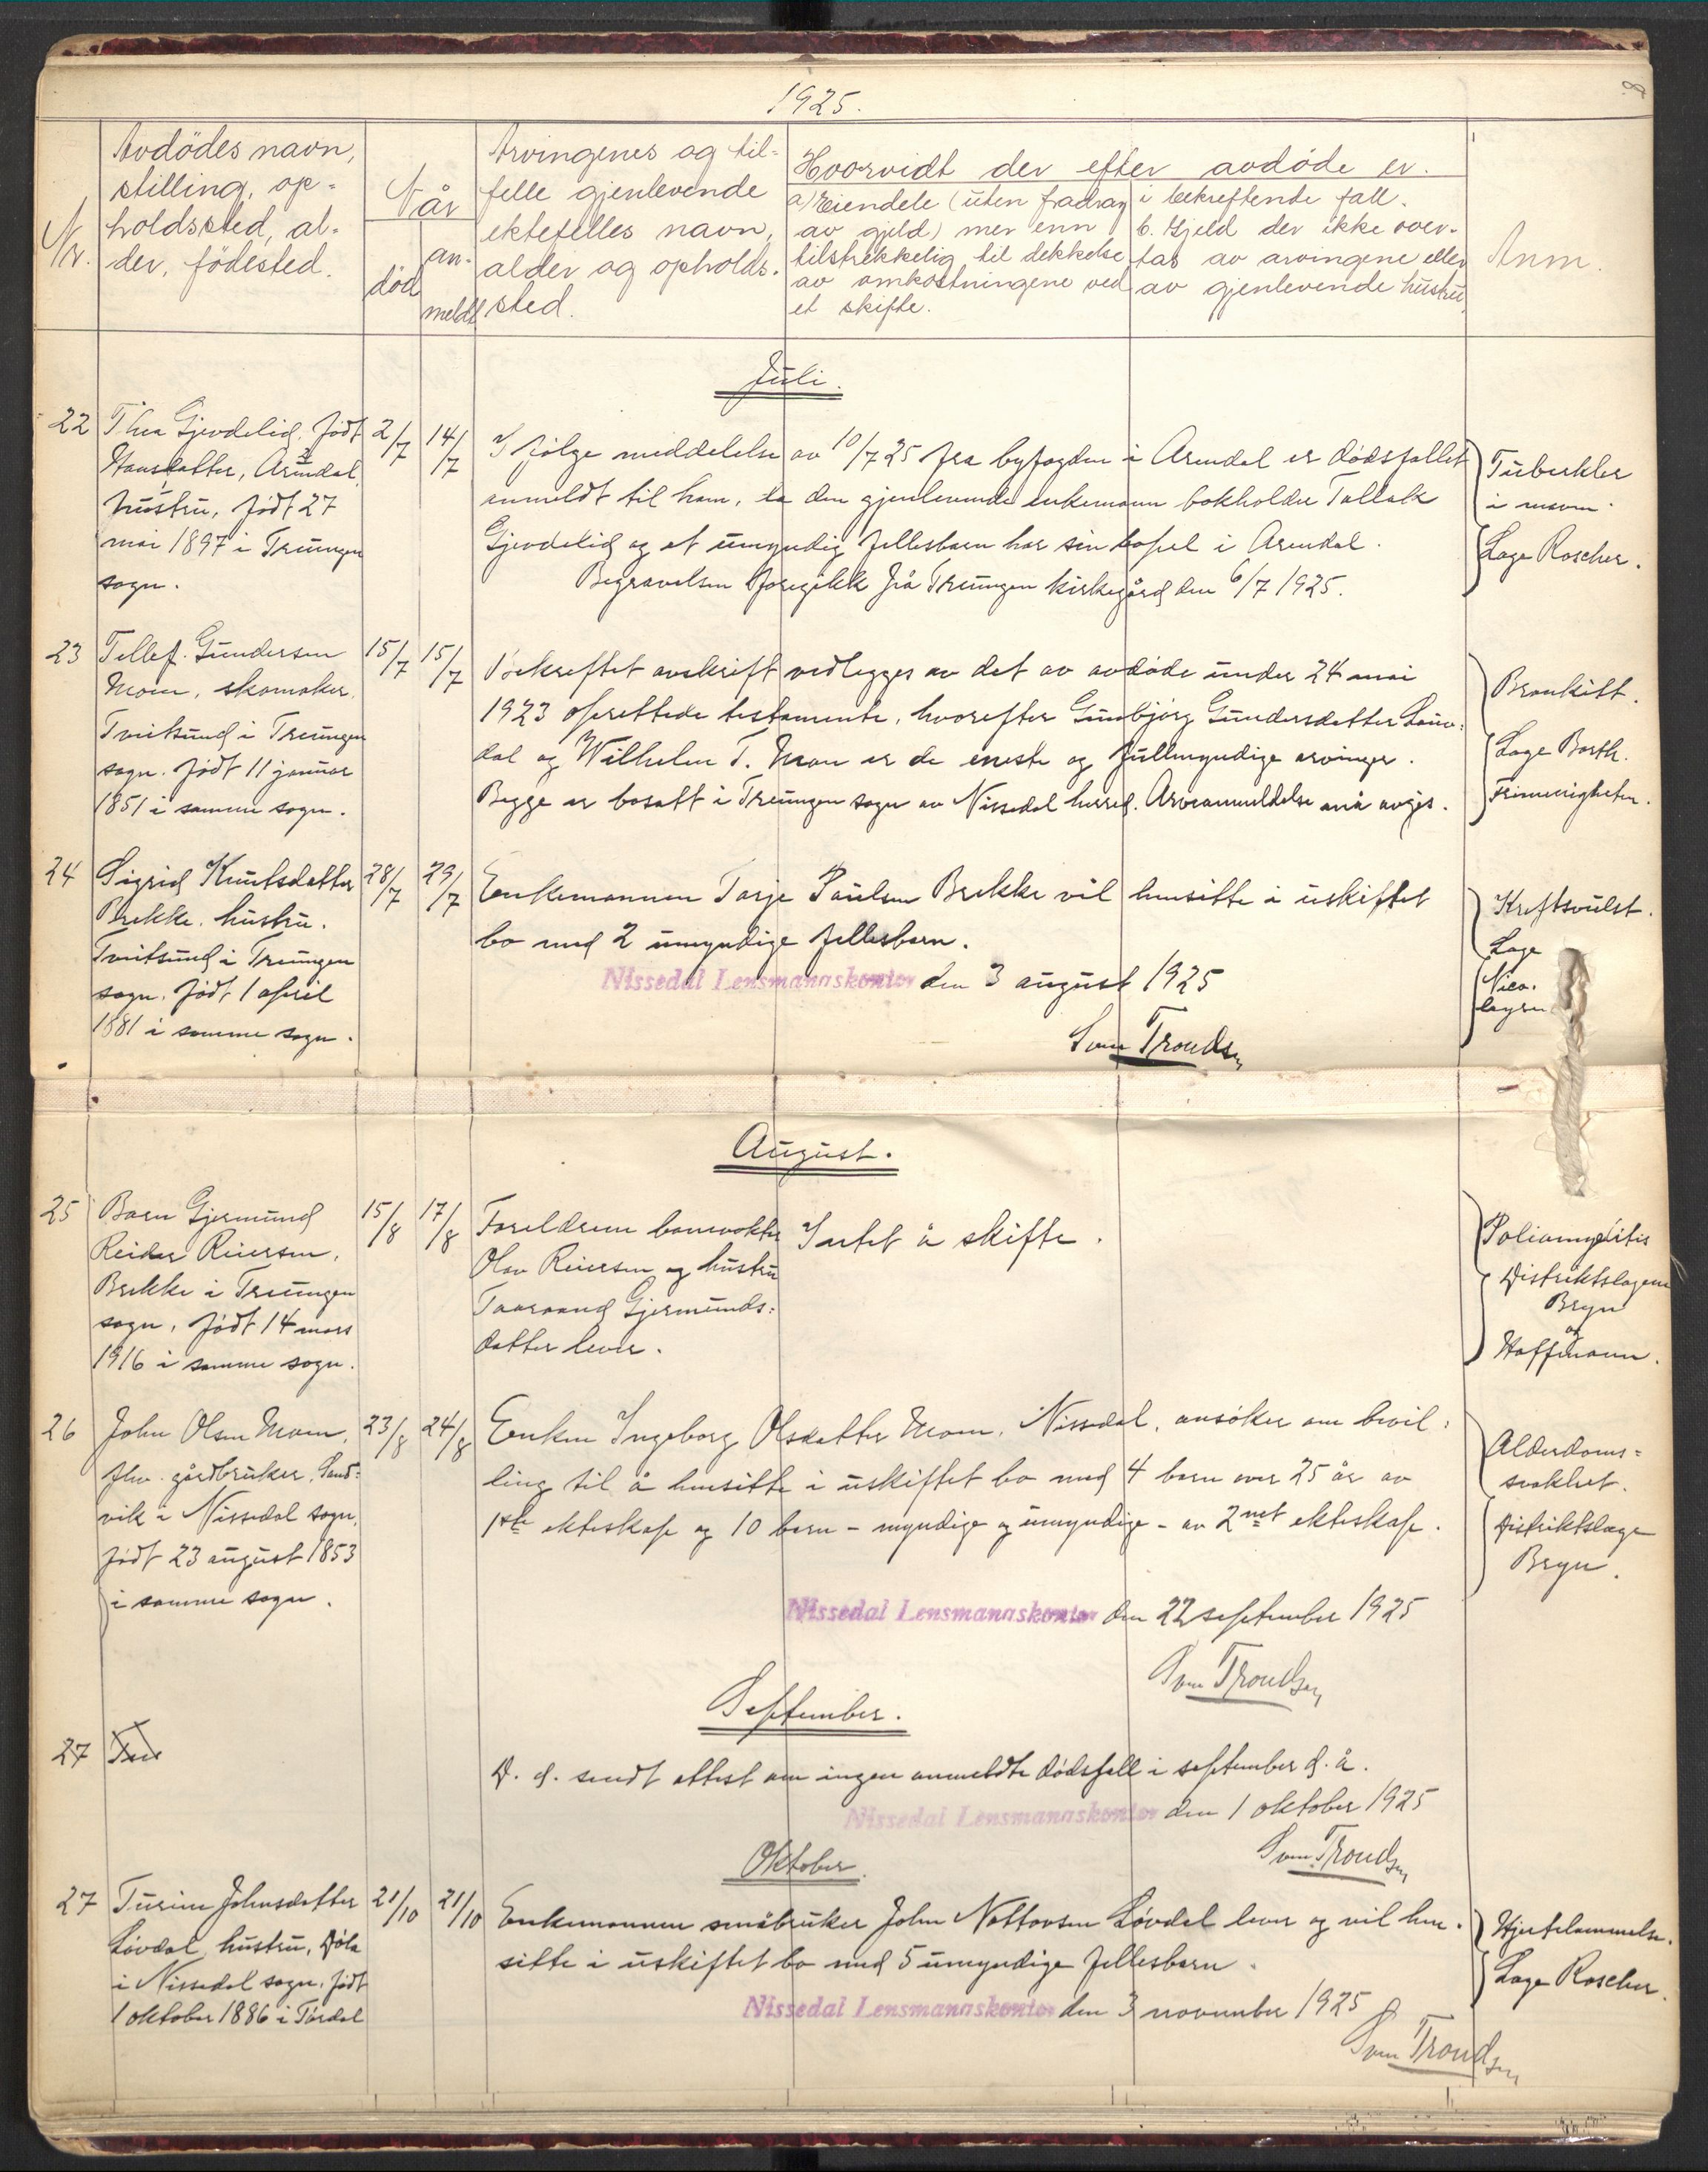 8.
1925.
Nr.
Avdödes navn,
stilling, op-
holdssted, al-
der, födested.
Når
död
an-
meldt
Arvingenes og til-
felle gjenlevende
ektefelles navn,
alder og opholds-
sted.
Hvorvidt der efter avdöde er.
a) Eiendele (uten fradrag
av gjeld) mer enn
tilstrekkelig til dekkelse
av omkostningene ved
et skifte.
i bekreftende fall.
b. Gjeld der ikke over-
tas av arvingene eller
av gjenlevende hustru,
Anm.
Juli.
22
Thea Gjevdelid, født
Hansdatter, Arendal,
hustru, født 27
mai 1897 i Treungen
sogn.
2/7
14/7
I følge meddelelse av 10/7 25 fra byfogden i Arendal er dødsfallet
anmeldt til ham, da den gjenlevende enkemann bokholder Tallak
Gjevdelid og et umyndig fellesbarn har sin bopel i Arendal.
Begravelsen foregikk på Treungen kirkegård den 6/7 1925.
Tuberkler
i maven.
Læge Roscher.
23
Tellef Gundersen
Moen, skomaker,
Tveitsund i Treungen
sogn. Født 11 januar
1851 i samme sogn.
15/7
15/7
Bekreftet avskrift vedlegges av det av avdøde under 24 mai
1923 oprettede testamente, hvorefter Gunbjørg Gundersdatter Lauv-
dal og Wilhelm T. Moen er de eneste og fullmyndige arvinger.
Begge er bosatt i Treungen sogn av Nissedal herred. Arveanmeldelse må avgis.
Bronkitt.
Læge Barth.
Frimerigheten.
24
Sigrid Knutsdatter
Brekke, hustru.
Tveitsund i Treungen
sogn. Født 1 april
1881 i samme sogn.
28/7
29/7
Enkemannen Tarje Paulsen Brekke vil hensitte i uskiftet
bo med 2 umyndige fellesbarn.
Nissedal Lensmannskontor den 3 august 1925
Sven Trondsen
Kreftsvulst.
Læge
Nico-
laysen
August.
25
Barn Gjermund
Reidar Reiersen,
Brekke i Treungen
sogn, født 14 mars
1916 i samme sogn.
15/8
17/8
Foreldrene banevokter
Olav Reiersen og hustru
Taaraand Gjermunds-
datter lever.
Intet å skifte.
Poliomyelitis
Distriktslægene
Bryn
og
Hoffmann.
26
John Olsen Moen,
fhv. gårdbruker, Sand-
vik i Nissedal sogn,
født 23 august 1853
i samme sogn.
23/8
24/8
Enken Ingeborg Olsdatter Moen, Nissedal, ansøker om bevil-
ling til å hensitte i uskiftet bo med 4 barn over 25 år av
1ste ekteskap og 10 barn – myndige og umyndige – av 2net ekteskap.
Nissedal Lensmannskontor den 22 september 1925
Sven Trondsen
Alderdoms-
svakhet.
Distriktslæge
Bryn.
September.
27
D. d. sendt attest om ingen anmeldte dødsfall i september d. å.
Nissedal Lensmannskontor den 1 oktober 1925
Sven Trondsen
Oktober.
27
Turine Johnsdatter
Løvdal, hustru, Dôla
i Nissedal sogn, født
1 oktober 1886 i Tørdal
21/10
21/10
Enkemannen småbruker John Nottovsen Løvdal lever og vil hen-
sitte i uskiftet bo med 5 umyndige fellesbarn.
Nissedal Lensmannskontor den 3 november 1925
Sven Trondsen
Hjertelammelse.
Læge Roscher.